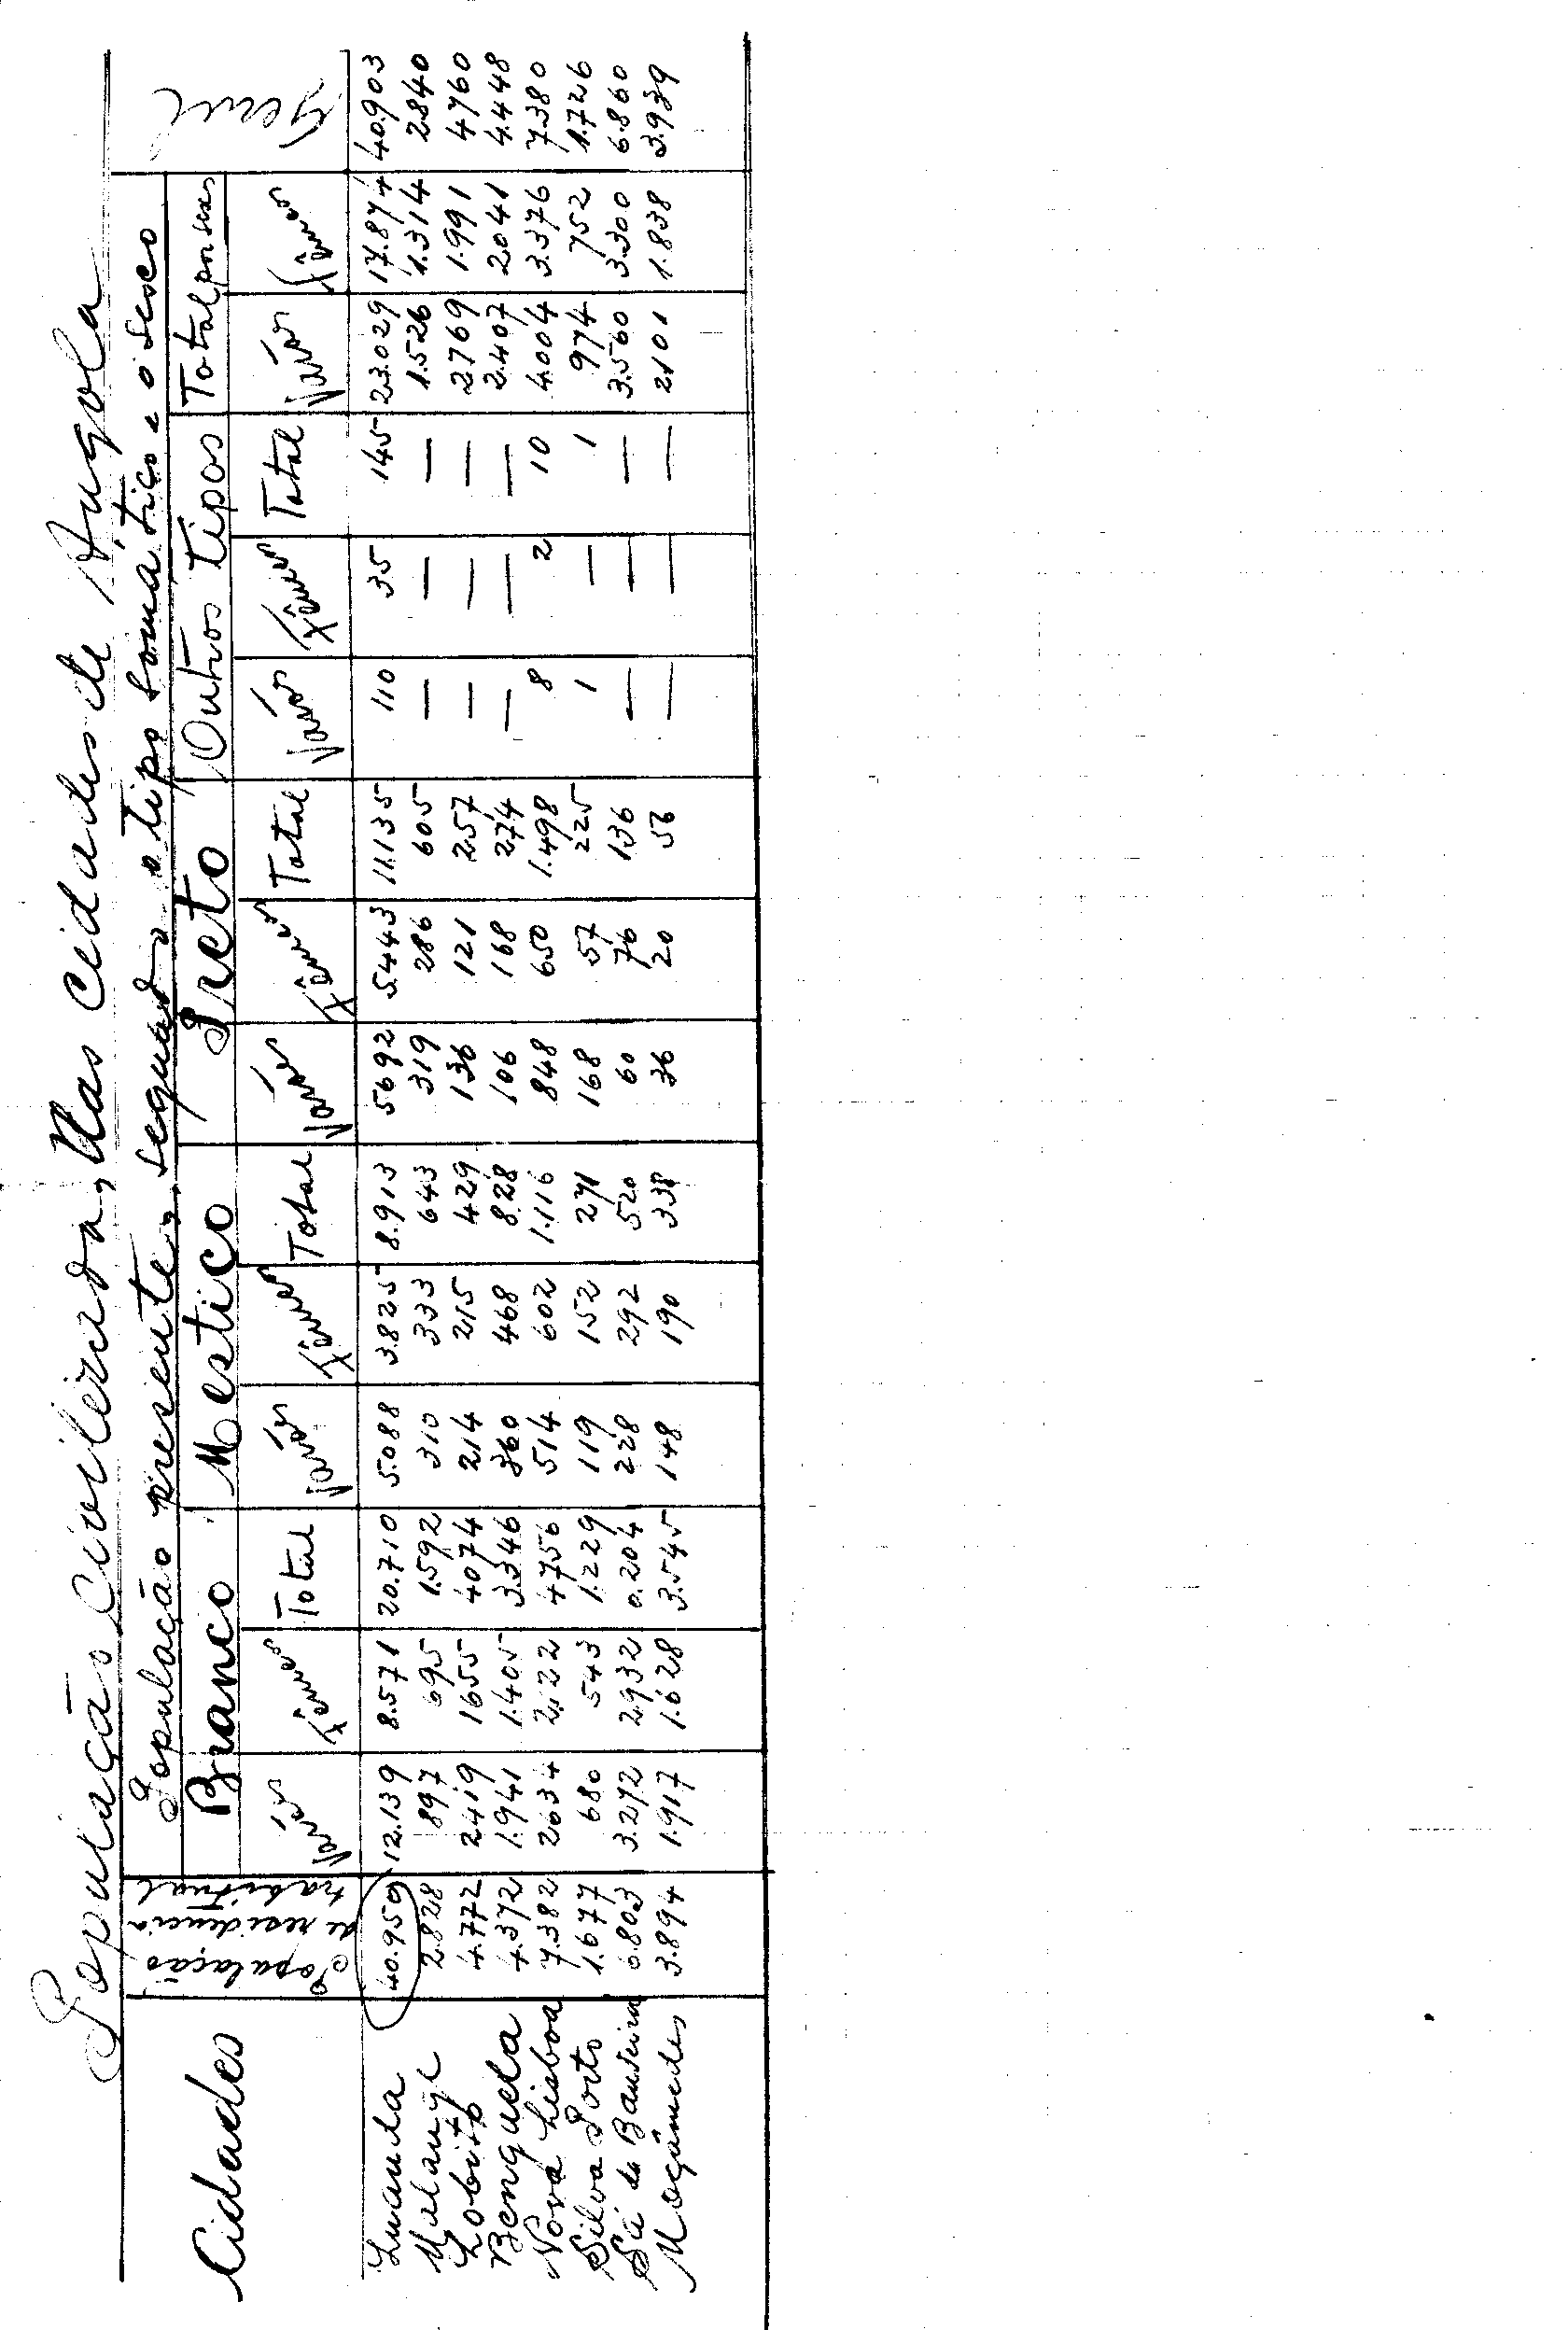 População Civilizada, Nas Cidades de Angola
População presente, segundo o tipo somático e o sexo
Cidades População de residencia habitual Branco Mestico Preto Outros tipos Total por sexos Geral
Varões Fêmeas Total Varões Fêmeas Total Varões Fêmeas Total Varões Fêmeas Total Varões Fêmeas
Luanda 40.959 12.139 8.571 20.710 5.088 3.825 8.913 5692 5.443 11.135 110 35 145 23.029 17.874 40.903
Malange 2.828 897 695 1.592 310 333 643 319 286 605 — — — 1.526 1.314 2.840
Lobito 4.772 2419 1655 4074 214 215 429 136 121 257 — — — 2769 1.991 4760
Benguela 4.372 1.941 1.405 3.346 360 468 828 106 168 274 — — — 2.407 2041 4.448
Nova Lisboa 7.382 2634 2.122 4756 514 602 1.116 848 650 1.498 8 2 10 4.004 3.376 7.380
Silva Porto 1.677 686 543 1.229 119 152 271 168 57 225 1 — 1 974 752 1.726
Sá da Bandeira 6.803 3.272 2.932 6.204 228 292 520 60 76 136 — — — 3.560 3.300 6.860
Moçâmedes 3.894 1.917 1.628 3.545 148 190 338 36 20 56 — — — 2101 1.838 3.939